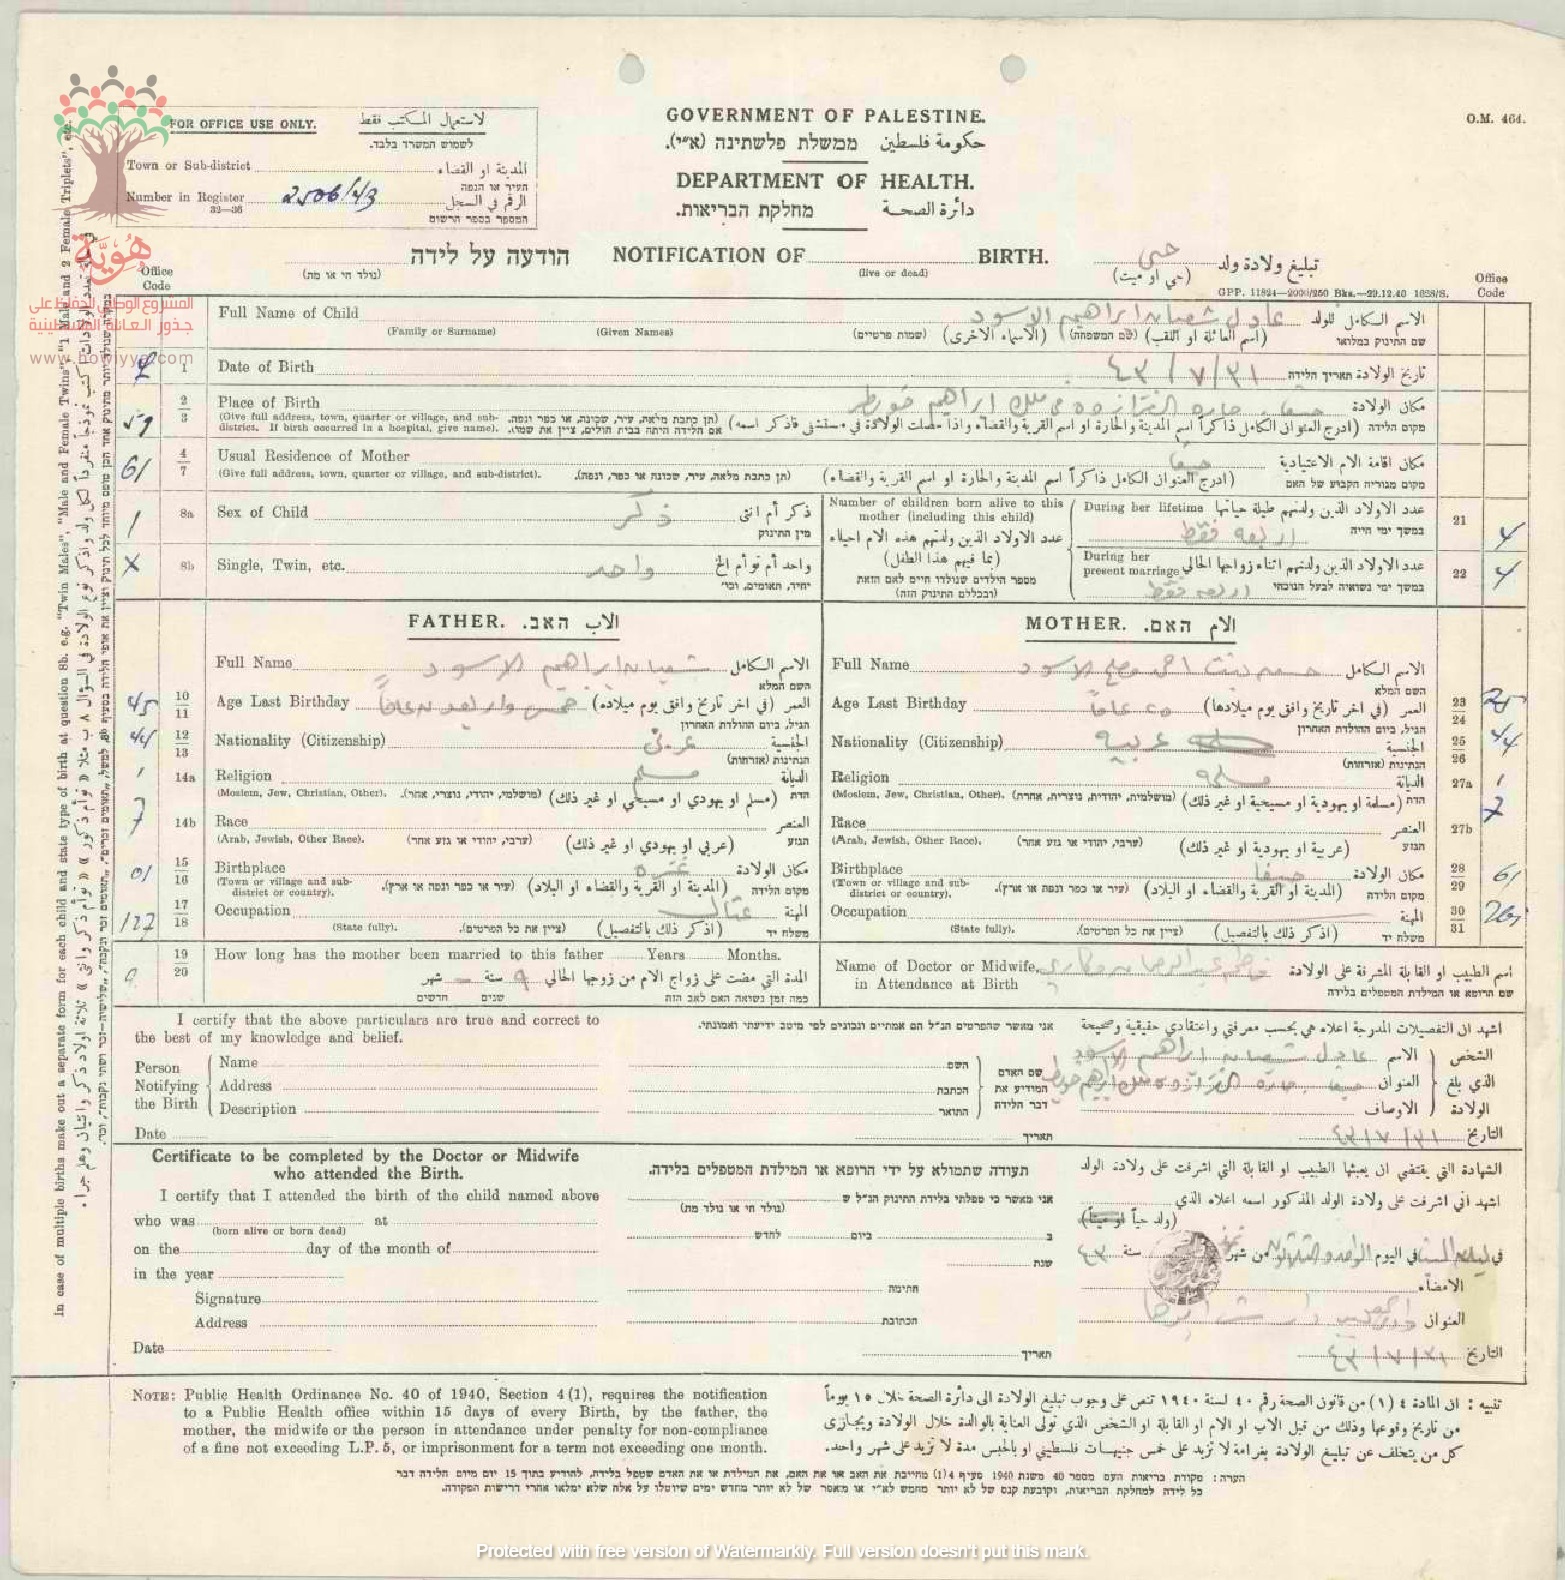 GOVERNMENT OF PALESTINE.
حكومة فلسطين ממשלת פלשתינה (א״י).
DEPARTMENT OF HEALTH.
دائرة الصحة מחלקת הבריאות.
O.M. 464.
FOR OFFICE USE ONLY. لاستعمال المكتب فقط
לשמוש המשרד בלבד.
Town or Sub-district المدينة او القضاء
העיר או הנפה
Number in Register 2506/43 الرقم في السجل
32—36 המספר בספר הרשום
הודעה על לידה NOTIFICATION OF BIRTH. تبليغ ولادة ولد حي
(נולד חי או מת) (live or dead) (حي او ميت)
GPP. 11824—2000/250 Bks.—29.12.40 1658/S.
Office Code
Office Code
هوية
المشروع الوطني للحفاظ على
جذور العائلة الفلسطينية
www.howiyya.com
Full Name of Child عادل شعبان ابراهيم الاسود الاسم الكامل للولد
(Family or Surname) (Given Names) (שמות פרטיים) (الاسماء الاخرى) (שם המשפחה) (اسم العائلة او اللقب) שם התינוק במלואו
1 Date of Birth ٤٣/٧/٣١ تاريخ الولادة תאריך הלידה
59 2/3 Place of Birth مكان الولادة
(Give full address, town, quarter or village, and sub-district. If birth occurred in a hospital, give name). (תן כתבת מלאה, עיר, שכונה, או כפר ונפה. אם הלידה היתה בבית חולים, ציין את שמו). (ادرج العنوان الكامل ذاكراً اسم المدينة والحارة او اسم القرية والقضاء واذا حصلت الولادة في مستشفى فاذكر اسمه) מקום הלידה
61 4/7 Usual Residence of Mother حيفا مكان اقامة الام الاعتيادية
(Give full address, town, quarter or village, and sub-district). (תן כתבת מלאה, עיר, שכונה או כפר, ונפה). (ادرج العنوان الكامل ذاكراً اسم المدينة والحارة او اسم القرية والقضاء) מקום מגוריה הקבוע של האם
1 8a Sex of Child ذكر ذكر أم انثى
מין התינוק
X 8b Single, Twin, etc. واحد واحد أم توأم الخ
יחיד, תאומים, וכו׳
Number of children born alive to this mother (including this child)
عدد الاولاد الذين ولدتهم هذه الام احياء (بما فيهم هذا الطفل)
מספר הילדים שנולדו חיים לאם הזאת (ובכללם התינוק הזה)
During her lifetime عدد الاولاد الذين ولدتهم طيلة حياتها 21 4
اربعه فقط במשך ימי חייה
During her present marriage عدد الاولاد الذين ولدتهم اثناء زواجها الحالي 22 4
اربعه فقط במשך ימי נשואיה לבעל הנוכחי
FATHER. الاب האב.
Full Name شعبان ابراهيم الاسود الاسم الكامل
השם המלא
45 10/11 Age Last Birthday خمس واربعون عاماً العمر (في اخر تاريخ وافق يوم ميلاده)
הגיל, ביום ההולדת האחרון
44 12/13 Nationality (Citizenship) عربي الجنسية
הנתינות (אזרחות)
1 14a Religion مسلم الديانة
(Moslem, Jew, Christian, Other). (מושלמי, יהודי, נוצרי, אחר). (مسلم او يهودي او مسيحي او غير ذلك) הדת
7 14b Race العنصر
(Arab, Jewish, Other Race). (ערבי, יהודי או גזע אחר) (عربي او يهودي او غير ذلك) הגזע
01 15/16 Birthplace غزه مكان الولادة
(Town or village and sub-district or country). (עיר או כפר ונפה או ארץ). (المدينة او القرية والقضاء او البلاد) מקום הלידה
127 17/18 Occupation عتال المهنة
(State fully). (ציין את כל הפרטים). (اذكر ذلك بالتفصيل) משלח יד
MOTHER. الام האם.
Full Name الاسم الكامل
השם המלא
Age Last Birthday ٢٥ عاماً العمر (في اخر تاريخ وافق يوم ميلادها) 23/24 25
הגיל, ביום ההולדת האחרון
Nationality (Citizenship) عربيه الجنسية 25/26 44
הנתינות (אזרחות)
Religion مسلمه الديانة 27a 1
(Moslem, Jew, Christian, Other). (מושלמית, יהודית, נוצרית, אחרת) (مسلمة او يهودية او مسيحية او غير ذلك) הדת
Race العنصر 27b 7
(Arab, Jewish, Other Race). (ערבי, יהודי או גזע אחר) (عربية او يهودية او غير ذلك) הגזע
Birthplace حيفا مكان الولادة 28/29 61
(Town or village and sub-district or country). (עיר או כפר ונפה או ארץ). (المدينة او القرية والقضاء او البلاد) מקום הלידה
Occupation المهنة 30/31
(State fully). (ציין את כל הפרטים). (اذكر ذلك بالتفصيل) משלח יד
9 19/20 How long has the mother been married to this father Years Months.
المدة التي مضت على زواج الام من زوجها الحالي ٩ سنة — شهر
כמה זמן נשואה האם לאב הזה שנים חדשים
Name of Doctor or Midwife in Attendance at Birth اسم الطبيب او القابلة المشرفة على الولادة
שם הרופא או המילדת המטפלים בלידה
I certify that the above particulars are true and correct to the best of my knowledge and belief.
אני מאשר שהפרטים הנ״ל הם אמתיים ונכונים לפי מיטב ידיעתי ואמונתי.
اشهد ان التفصيلات المدرجة اعلاه هي بحسب معرفتي واعتقادي حقيقية وصحيحة
Person Notifying the Birth
Name השם
Address הכתבת
Description התואר
שם האדם המודיע את דבר הלידה
الشخص الذي بلغ الولادة
الاسم عادل شعبان ابراهيم الاسود
العنوان
الاوصاف
Date תאריך التاريخ ٤٣/٧/٣١
Certificate to be completed by the Doctor or Midwife who attended the Birth.
I certify that I attended the birth of the child named above
who was at
(born alive or born dead)
on the day of the month of
in the year
Signature
Address
Date
תעודה שתמולא על ידי הרופא או המילדת המטפלים בלידה.
אני מאשר כי טפלתי בלידת התינוק הנ״ל ש
(נולד חי או נולד מת)
ב ביום לחדש
שנת
חתימה
הכתובת
תאריך
الشهادة التي يقتضي ان يعبئها الطبيب او القابلة التي اشرفت على ولادة الولد
اشهد اني اشرفت على ولادة الولد المذكور اسمه اعلاه الذي
(ولد حياً او ميتاً)
في اليوم من شهر سنة ٤٣
الامضاء
العنوان
التاريخ ٤٣/٧/٣١
NOTE: Public Health Ordinance No. 40 of 1940, Section 4(1), requires the notification
to a Public Health office within 15 days of every Birth, by the father, the
mother, the midwife or the person in attendance under penalty for non-compliance
of a fine not exceeding L.P. 5, or imprisonment for a term not exceeding one month.
تنبيه: ان المادة ٤ (١) من قانون الصحة رقم ٤٠ لسنة ١٩٤٠ تنص على وجوب تبليغ الولادة الى دائرة الصحة خلال ١٥ يوماً
من تاريخ وقوعها وذلك من قبل الاب او الام او القابلة او الشخص الذي تولى العناية بالوالدة خلال الولادة ويجازى
كل من يتخلف عن تبليغ الولادة بغرامة لا تزيد على خمس جنيهات فلسطيني او بالحبس مدة لا تزيد على شهر واحد.
הערה: פקודת בריאות העם מספר 40 משנת 1940 סעיף 4(1) מחייבת את האב או את האם, את המילדת או את האדם שטפל בלידה, להודיע בתוך 15 יום מיום הלידה דבר
כל לידה למחלקת הבריאות, וקובעת קנס של לא יותר מחמש לא״י או מאסר של לא יותר מחדש ימים שיוטלו על אלה שלא ימלאו אחרי דרישות הפקודה.
In case of multiple births make out a separate form for each child and state type of birth at question 8b. e.g. "Twin Males", "Male and Female Twins", "1 Male and 2 Female Triplets", etc.
Protected with free version of Watermarkly. Full version doesn't put this mark.